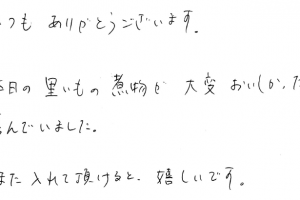 つも ありがとうございます。
日の 里いもの 煮物が 大変 おいしかった
んでいました。
また 入れて頂けると、嬉しいです。